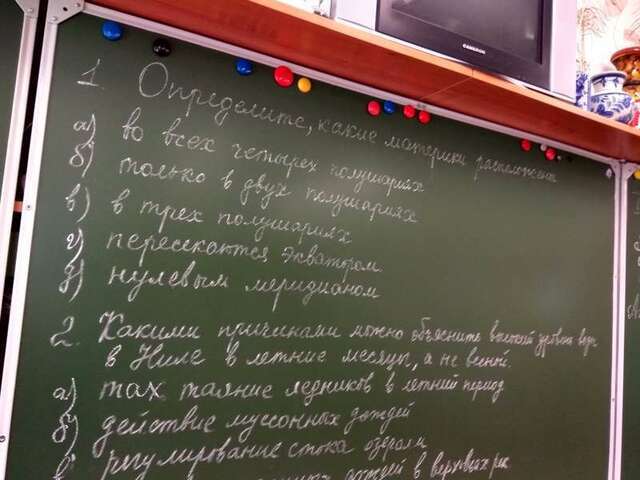 CAMERON
1. Определите, какие материки расположены
а) во всех четырех полушариях
б) только в двух полушариях
в) в трех полушариях
г) пересекаются экватором
д) нулевым меридианом
2. Какими причинами можно объяснить высокий уровень воды
в Ниле в летние месяцы, а не весной.
а) max таяние ледников в летний период
б) действие муссонных дождей
в) регулирование стока озерами
дождей в верховьях рек